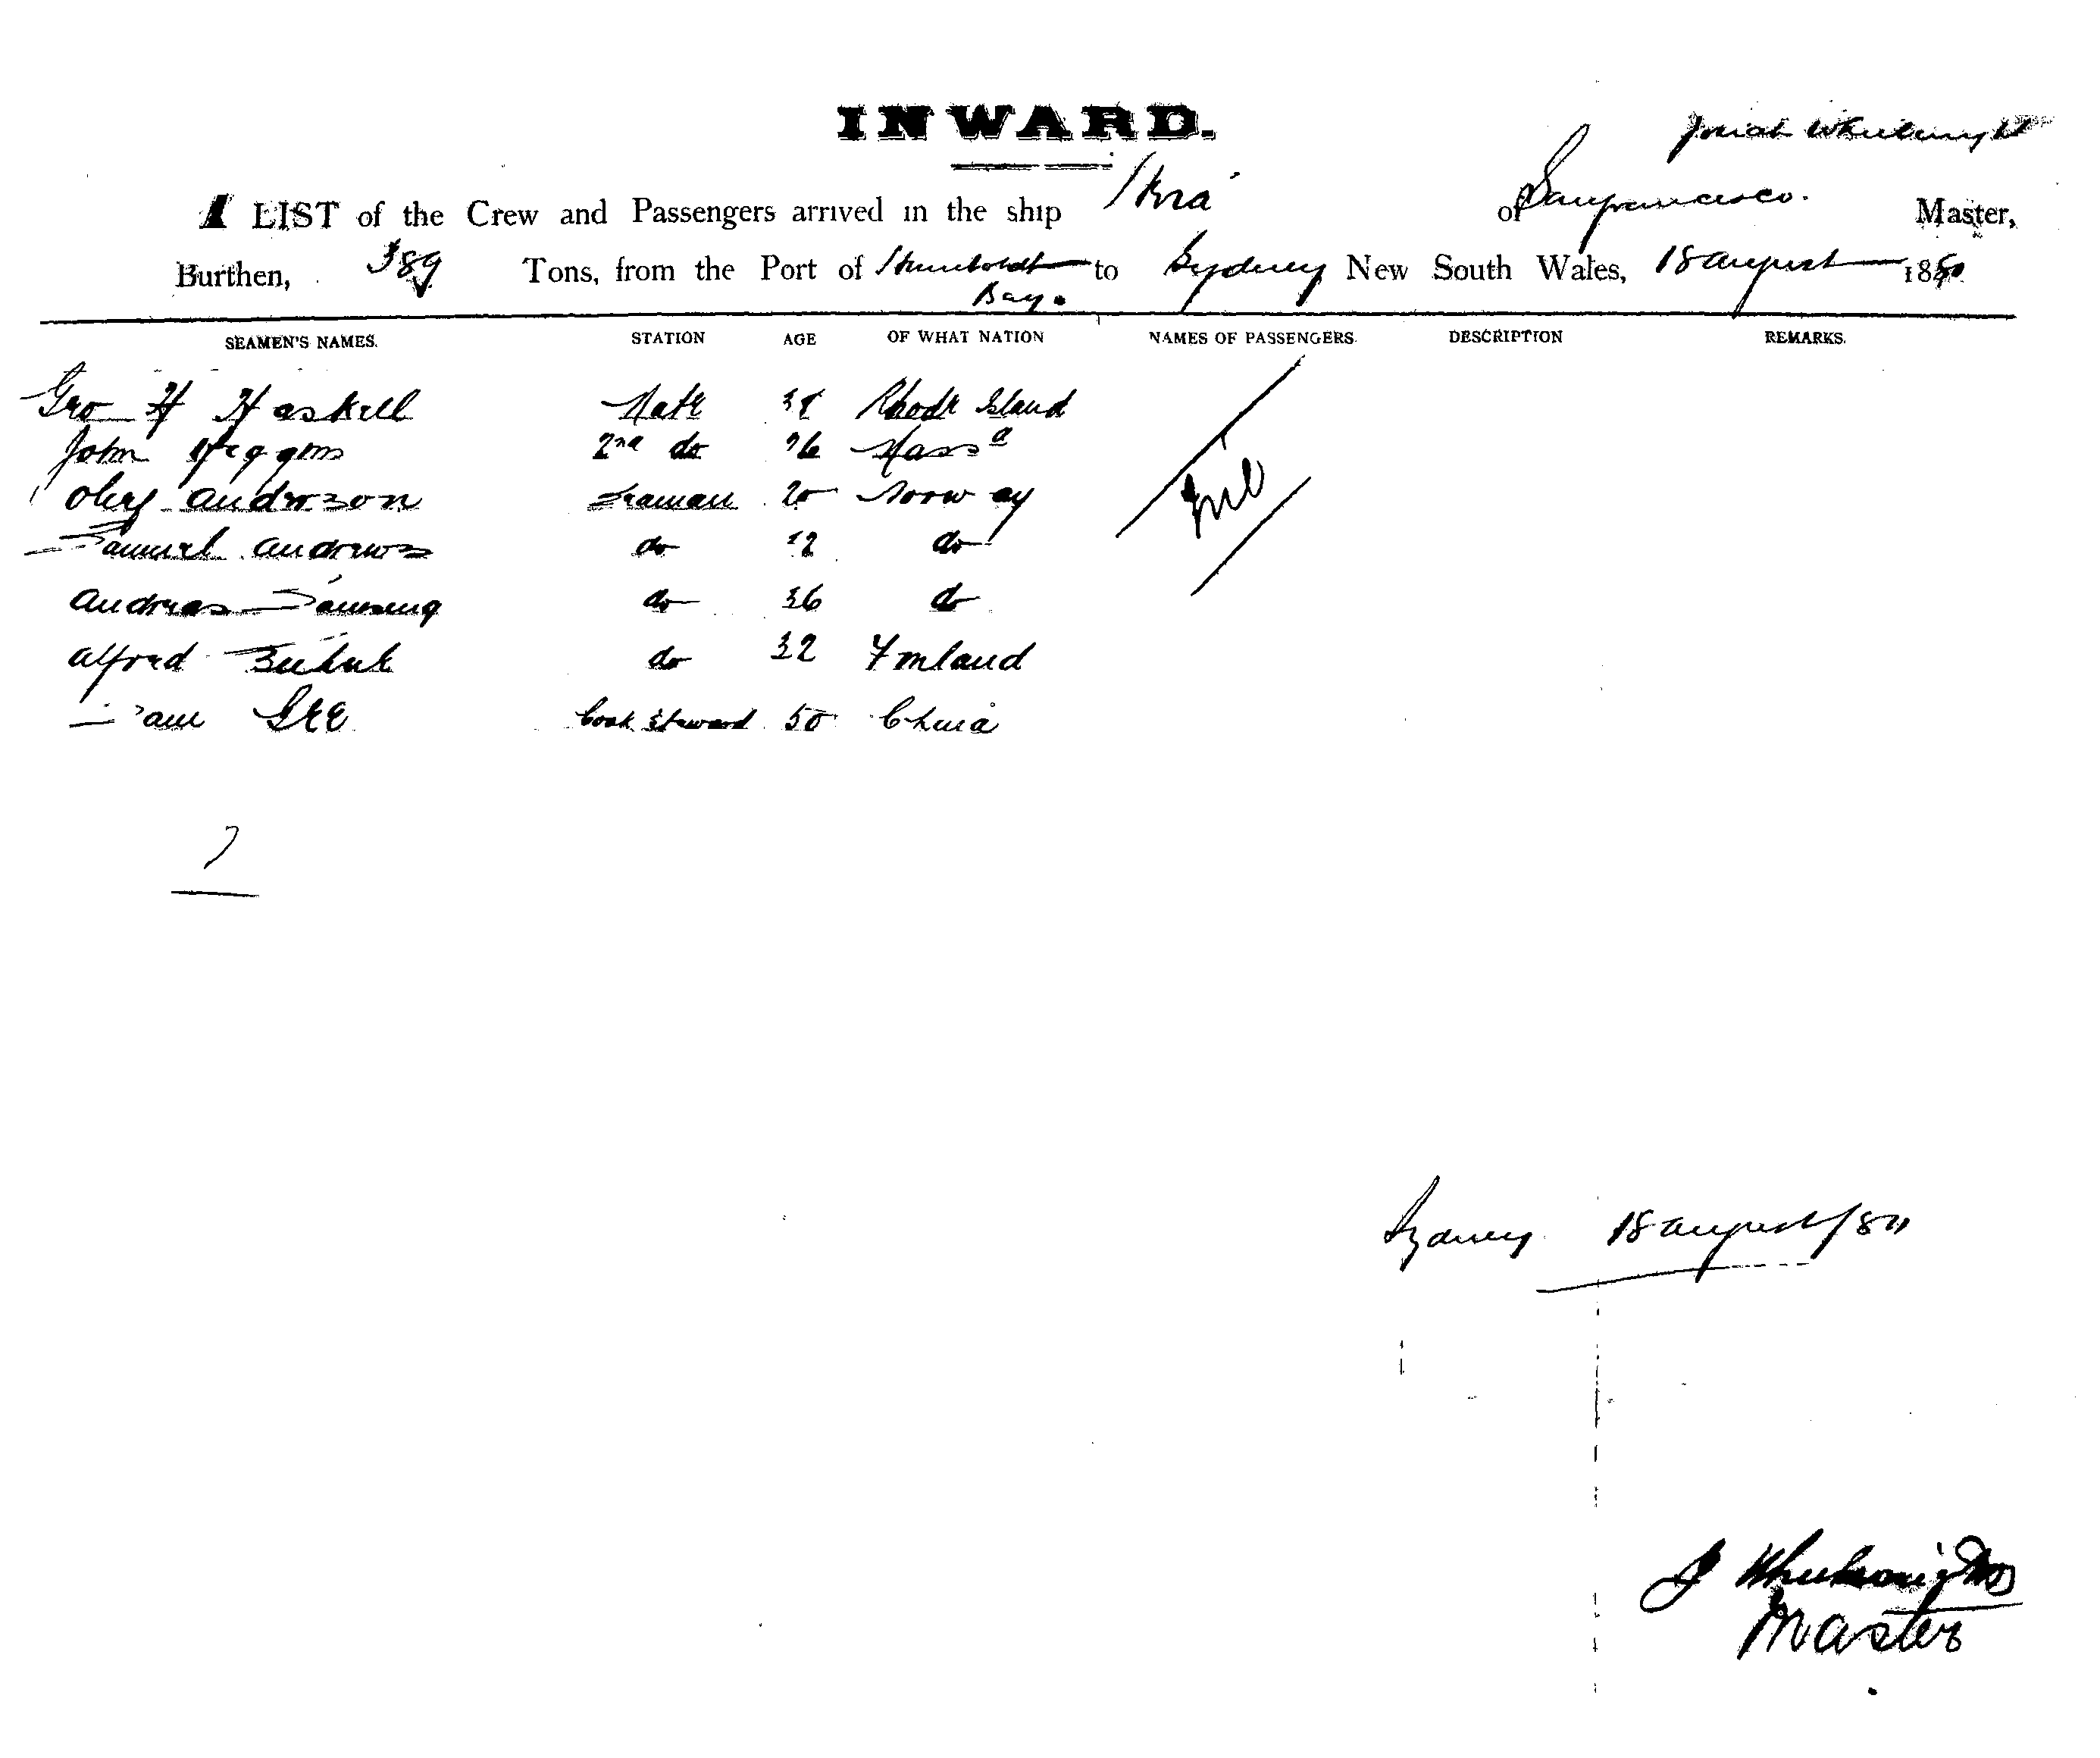 INWARD.
Josiah Wheelwright
A LIST of the Crew and Passengers arrived in the ship of Sanfrancisco. Master,
Burthen, 389 Tons, from the Port of Humboldt Bay. to Sydney New South Wales, 18 August 1880
SEAMEN'S NAMES. STATION AGE OF WHAT NATION NAMES OF PASSENGERS. DESCRIPTION REMARKS.
Geo H Haskell Mate Rhode Island
John Higgins 2nd do 26 Massa
Oley Anderson Seaman 20 Norway
Samuel Andrews do do
Andreas do 36 do
Alfred do 32 Finland
Sam Gee Cook Steward 50 China
Nil
7
Sydney 18 August/80
J Wheelwright
Master